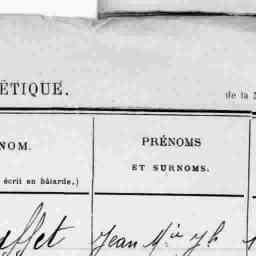 ÉTIQUE.
de la
NOM.
écrit en bâtarde,)
PRÉNOMS
ET SURNOMS.
Jean